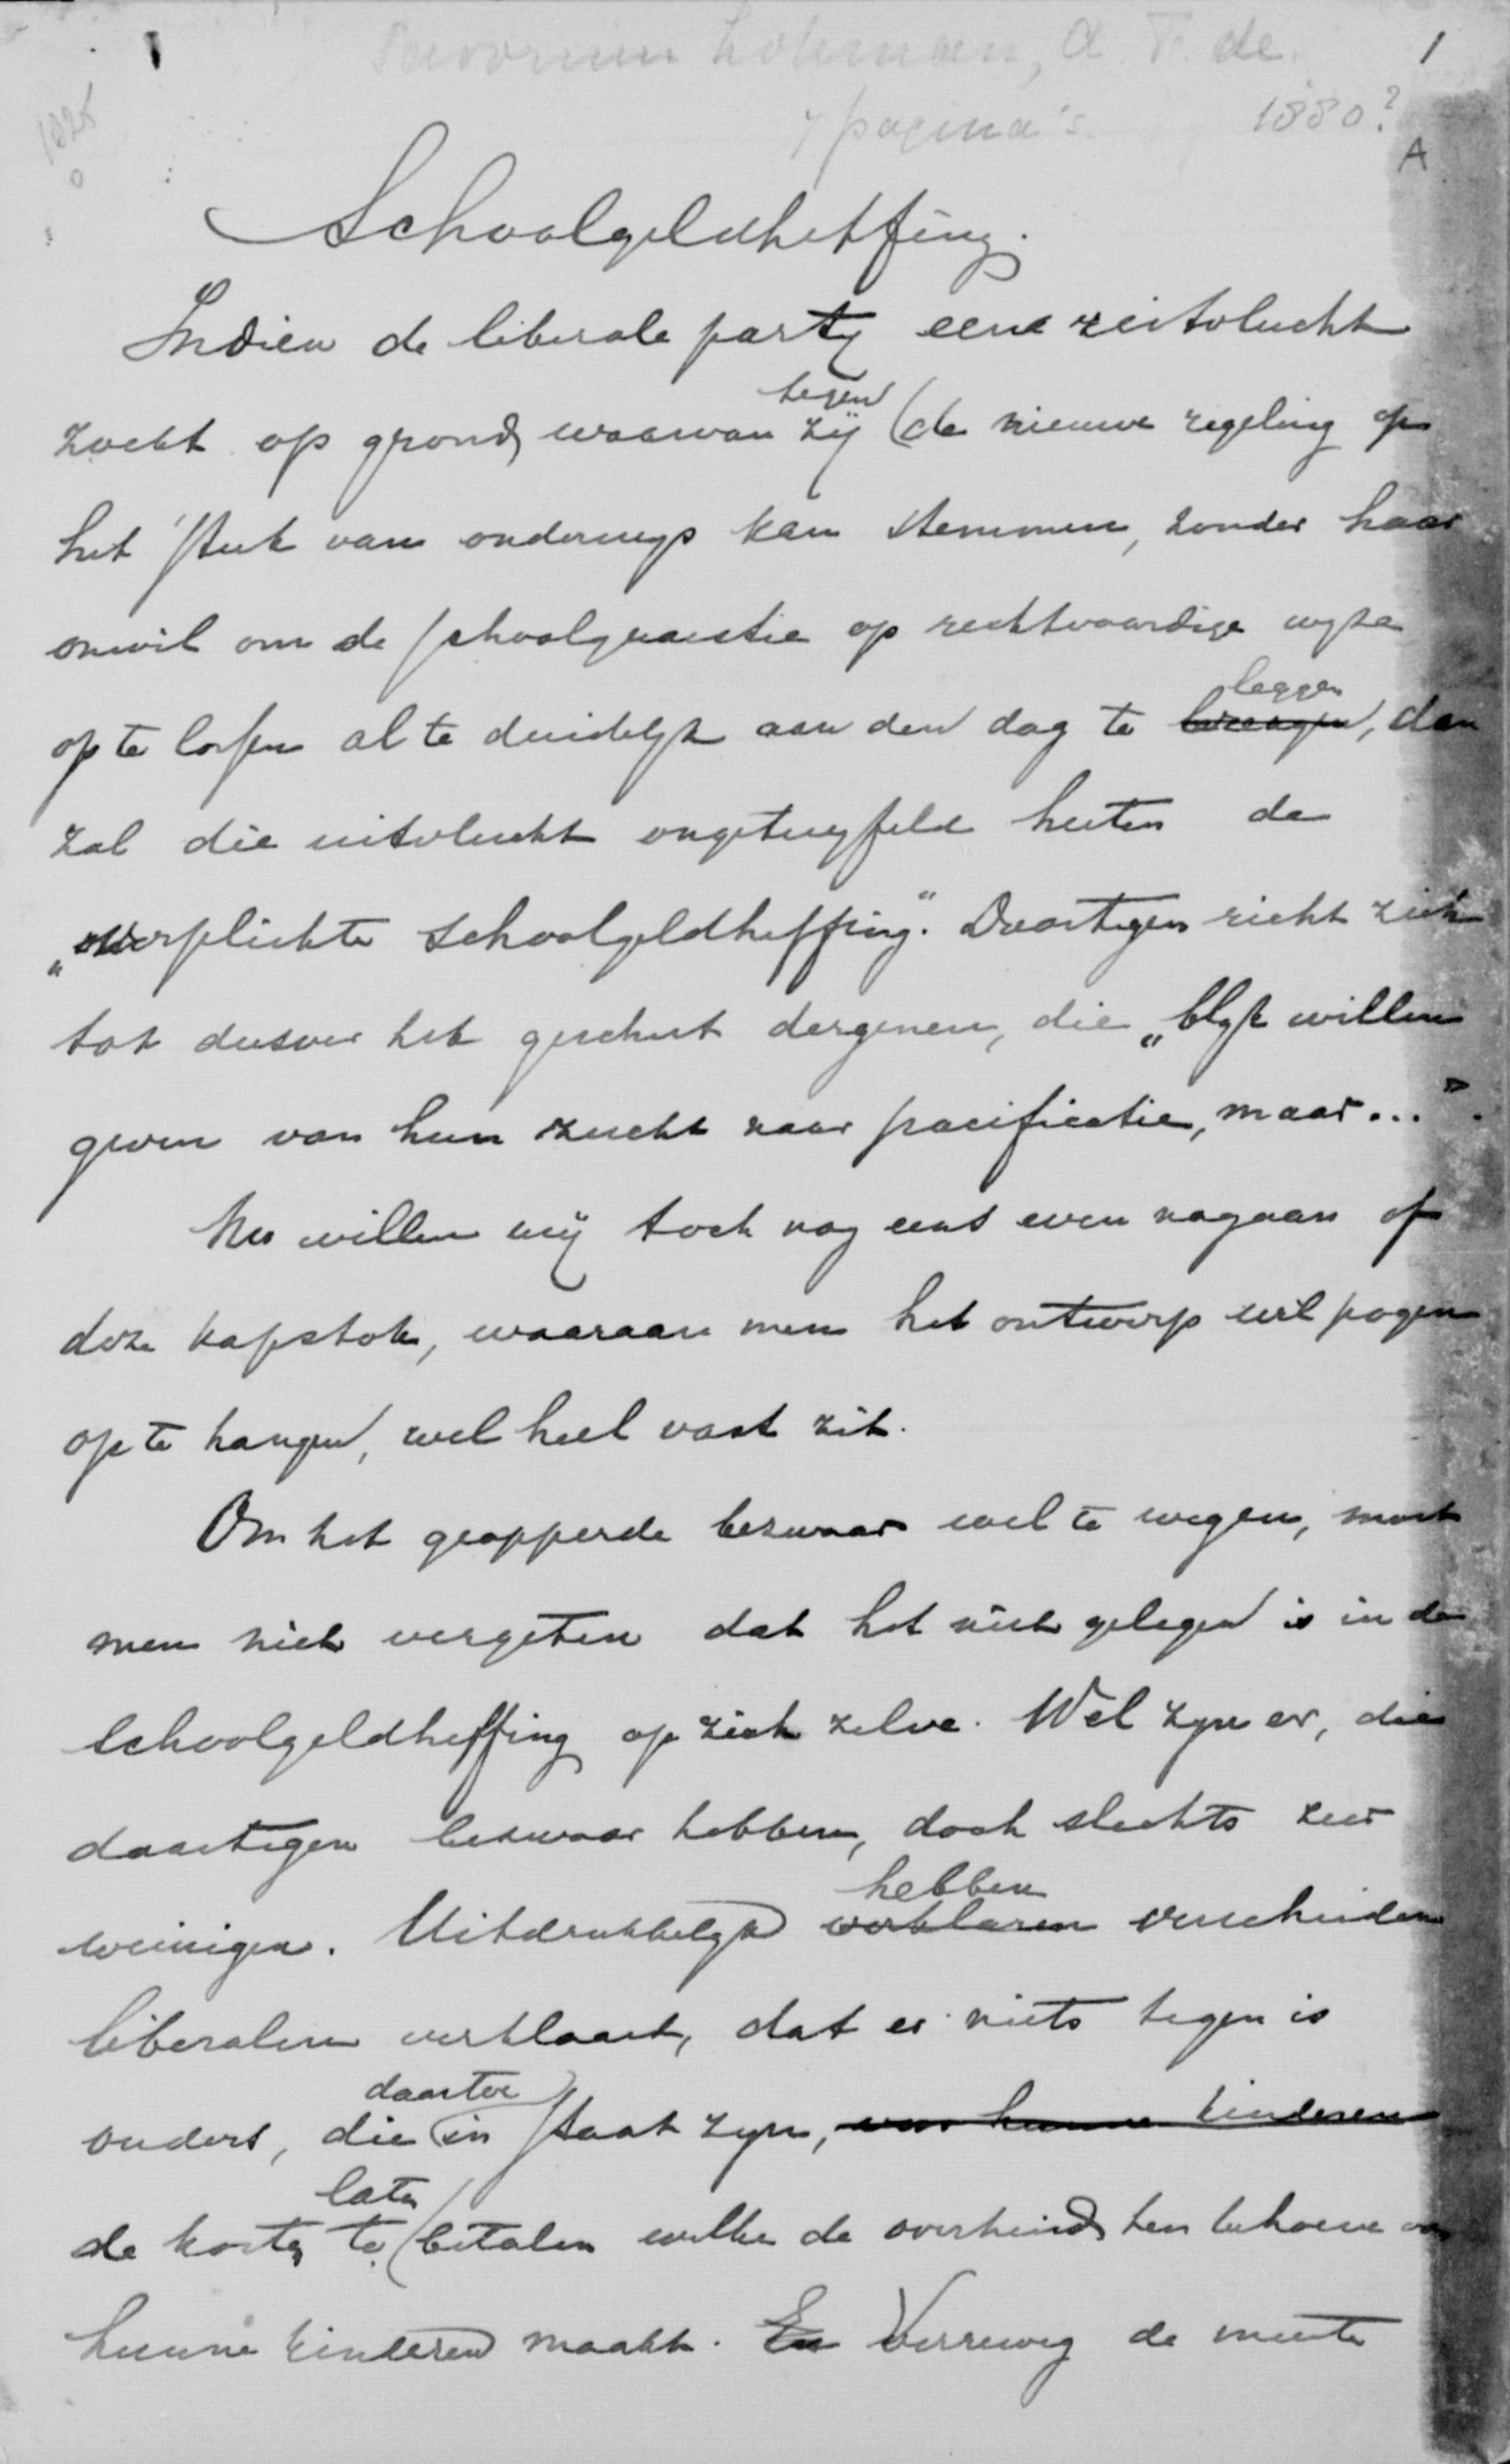 Savornin Lohman, A. F. de.
1
7 pagina's
1880?
A
Schoolgeldheffing.
Indien de liberale party eene uitvlucht
tegen
zoekt op grond waarvan zij de nieuwe regeling op
het stuk van onderwys kan stemmen, zonder haar
onwil om de schoolquaestie op rechtvaardige wyze
leggen
op te lossen al te duidelyk aan den dag te brengen, dan
zal die uitvlucht ongetwyfeld heeten de
„verplichte schoolgeldheffing". Daartegen richt zich
tot dusver het geschut dergenen, die „blyk willen
geven van hun zucht naar pacificatie, maar..."
Nu willen wij toch nog eens even nagaan of
deze kapstok, waaraan men het ontwerp wil pogen
op te hangen, wel heel vast zit.
Om het geopperde bezwaar wel te wegen, moet
men niet vergeten dat het niet gelegen is in de
schoolgeldheffing op zich zelve. Wel zyn er, die
daartegen bezwaar hebben, doch slechts zeer
hebben
weinigen. Uitdrukkelyk verklaren verscheidene
liberalen verklaard, dat er niets tegen is
daartoe
ouders, die in staat zyn, voor hunne kinderen
laten
de kosten te betalen welke de overheid ten behoeve van
hunne kinderen maakt. En Verreweg de meeste